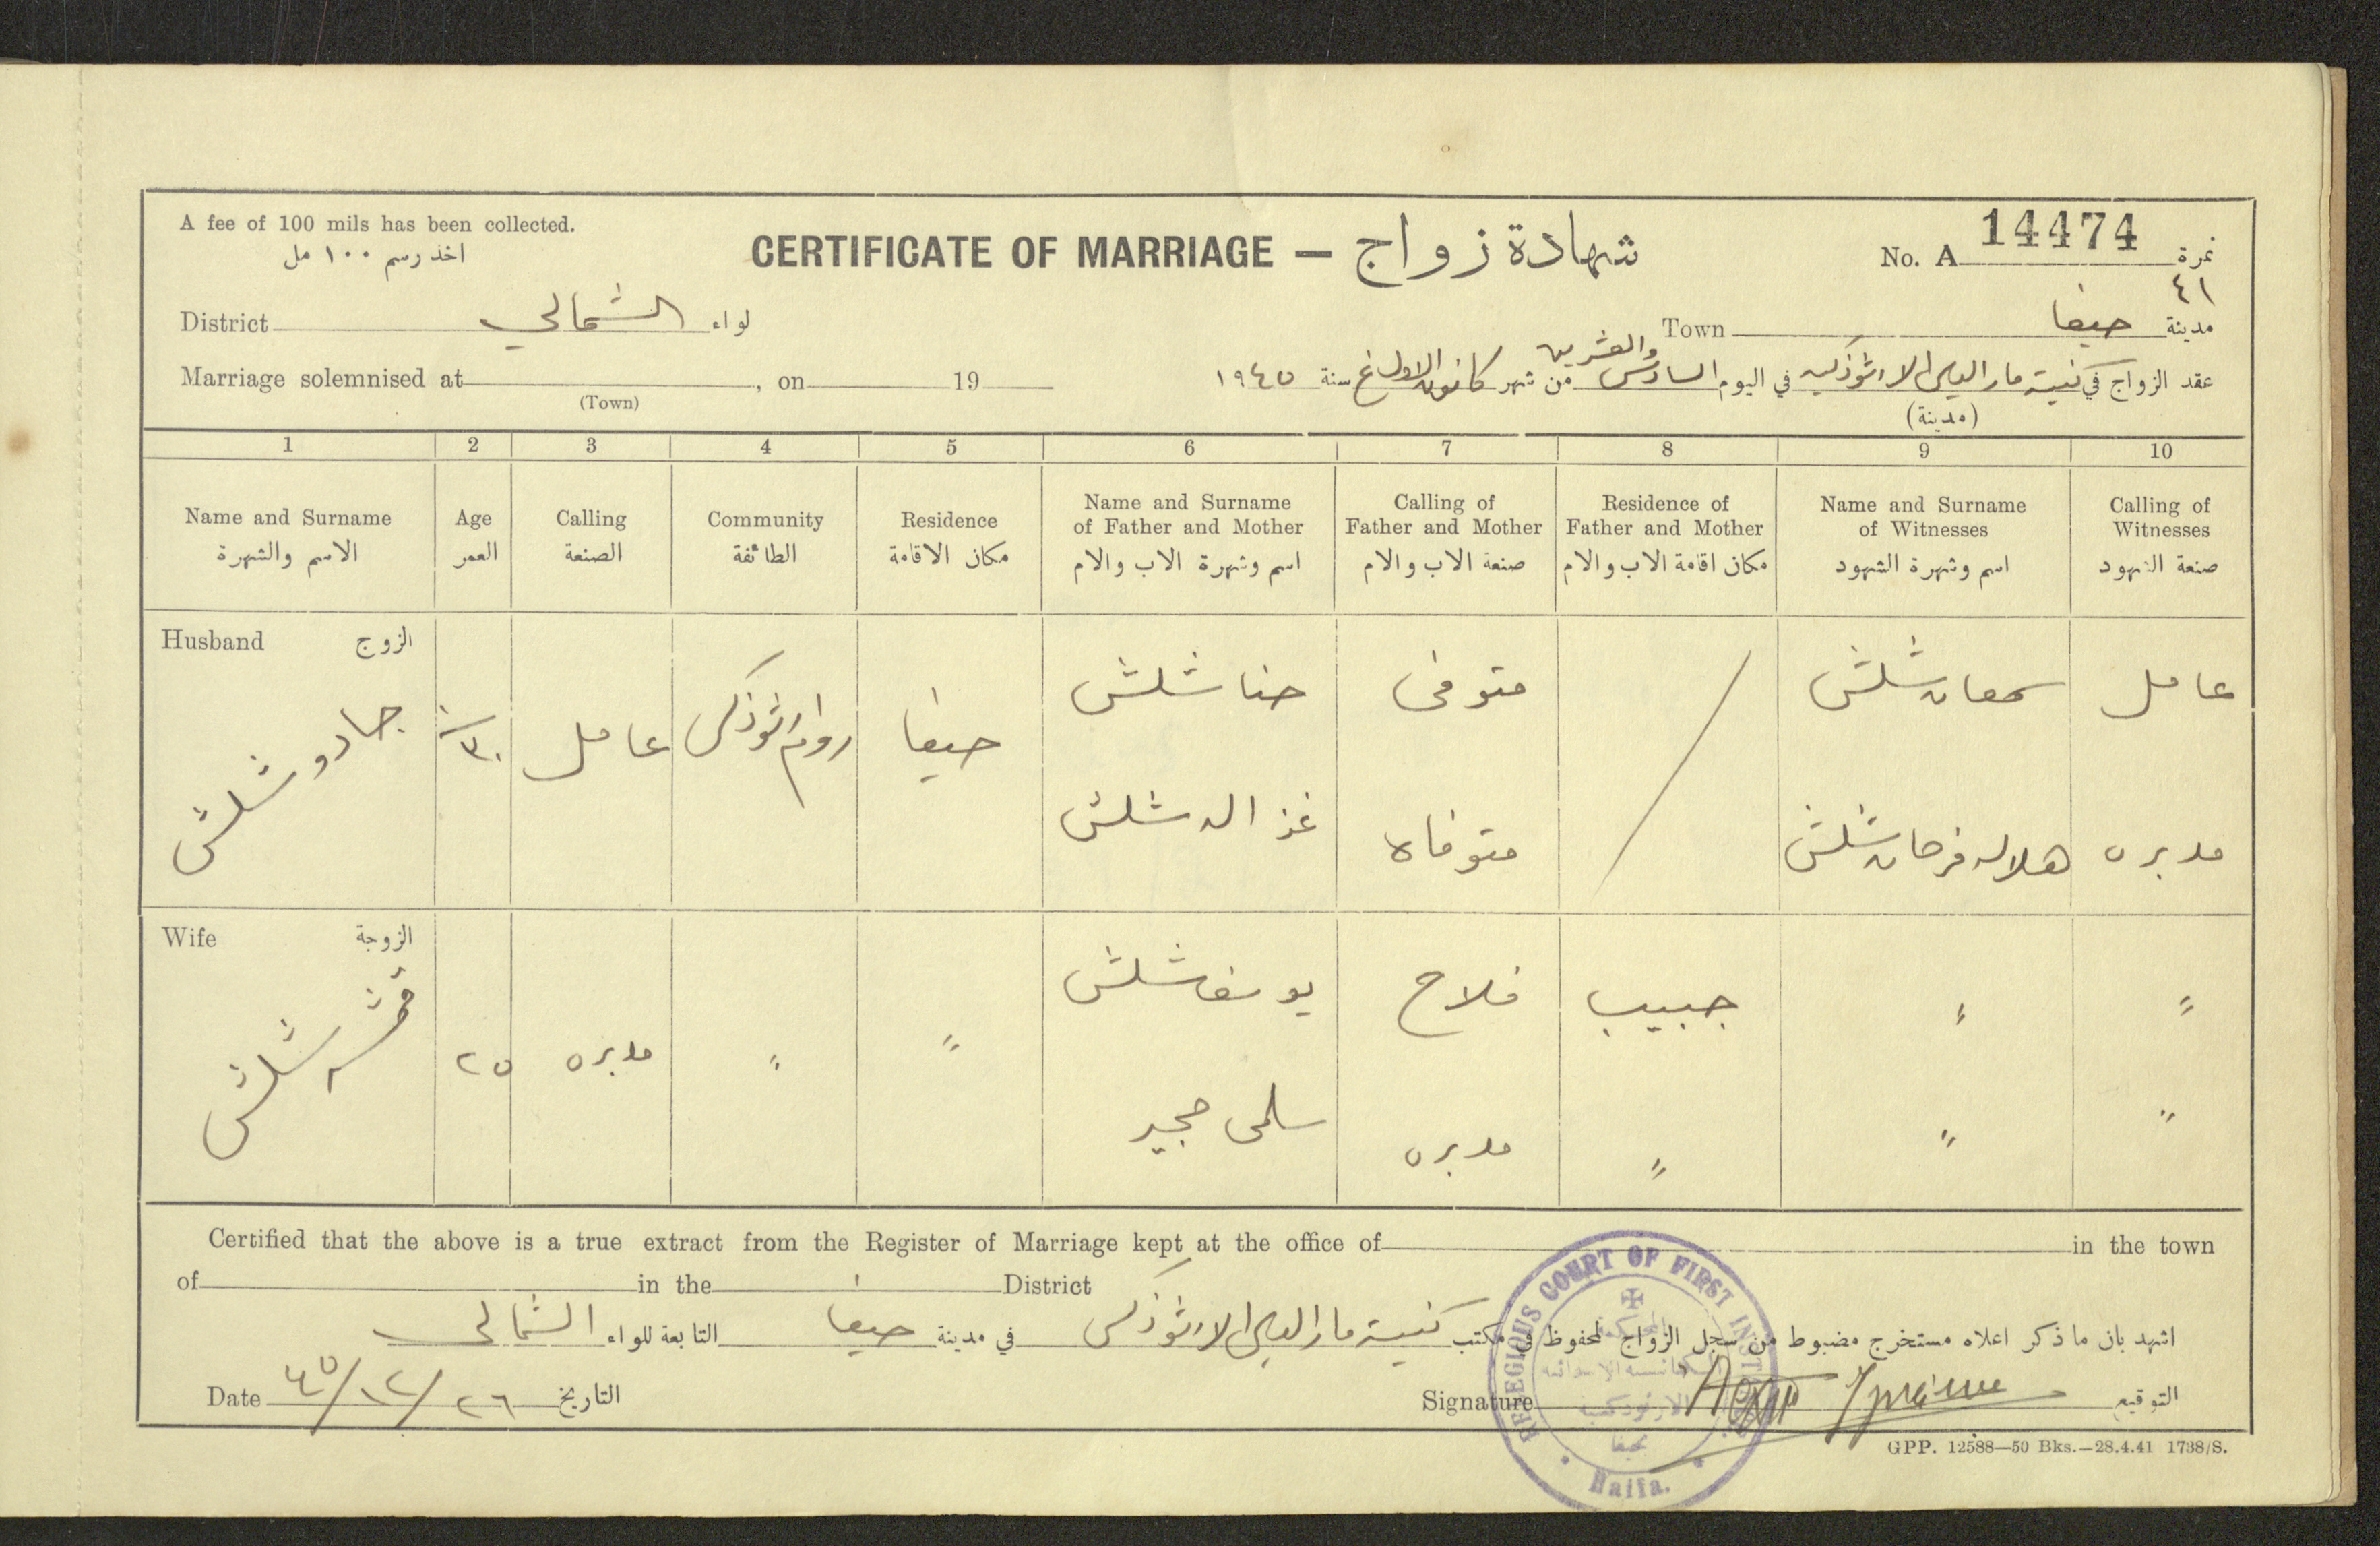 A fee of 100 mils has been collected.
اخذ رسم ١٠٠ مل
CERTIFICATE OF MARRIAGE — شهادة زواج
No. A 14474 نمرة
٤١
District الشمالي لواء
Town حيفا مدينة
Marriage solemnised at , on 19
(Town)
عقد الزواج في كنيسة مار الياس الارثوذكسية في اليوم السادس والعشرين من شهر كانون الاول سنة ١٩٤٥
(مدينة)
1 2 3 4 5 6 7 8 9 10
Name and Surname
الاسم والشهرة
Age
العمر
Calling
الصنعة
Community
الطائفة
Residence
مكان الاقامة
Name and Surname
of Father and Mother
اسم وشهرة الاب والام
Calling of
Father and Mother
صنعة الاب والام
Residence of
Father and Mother
مكان اقامة الاب والام
Name and Surname
of Witnesses
اسم وشهرة الشهود
Calling of
Witnesses
صنعة الشهود
Husband الزوج
شلش
٣٠
عامل
روم ارثوذكس
حيفا
حنا شلش
متوفى
سمعان شلش
عامل
غزاله شلش
متوفاه
هلاله فرحان شلش
مدبره
Wife الزوجة
شلش
٢٥
مدبره
〃
〃
يوسف شلش
فلاح
〃
〃
سلمى حجير
مدبره
〃
〃
〃
Certified that the above is a true extract from the Register of Marriage kept at the office of in the town
of in the District
اشهد بان ما ذكر اعلاه مستخرج مضبوط من سجل الزواج المحفوظ في مكتب كنيسة مار الياس الارثوذكس في مدينة حيفا التابعة للواء الشمالي
Date ٢٦/١٢/٤٥ التاريخ
Signature التوقيع
RELEGIOUS COURT OF FIRST INST
الارثوذكسية
بحيفا
Haifa.
GPP. 12588—50 Bks.—28.4.41 1738/S.